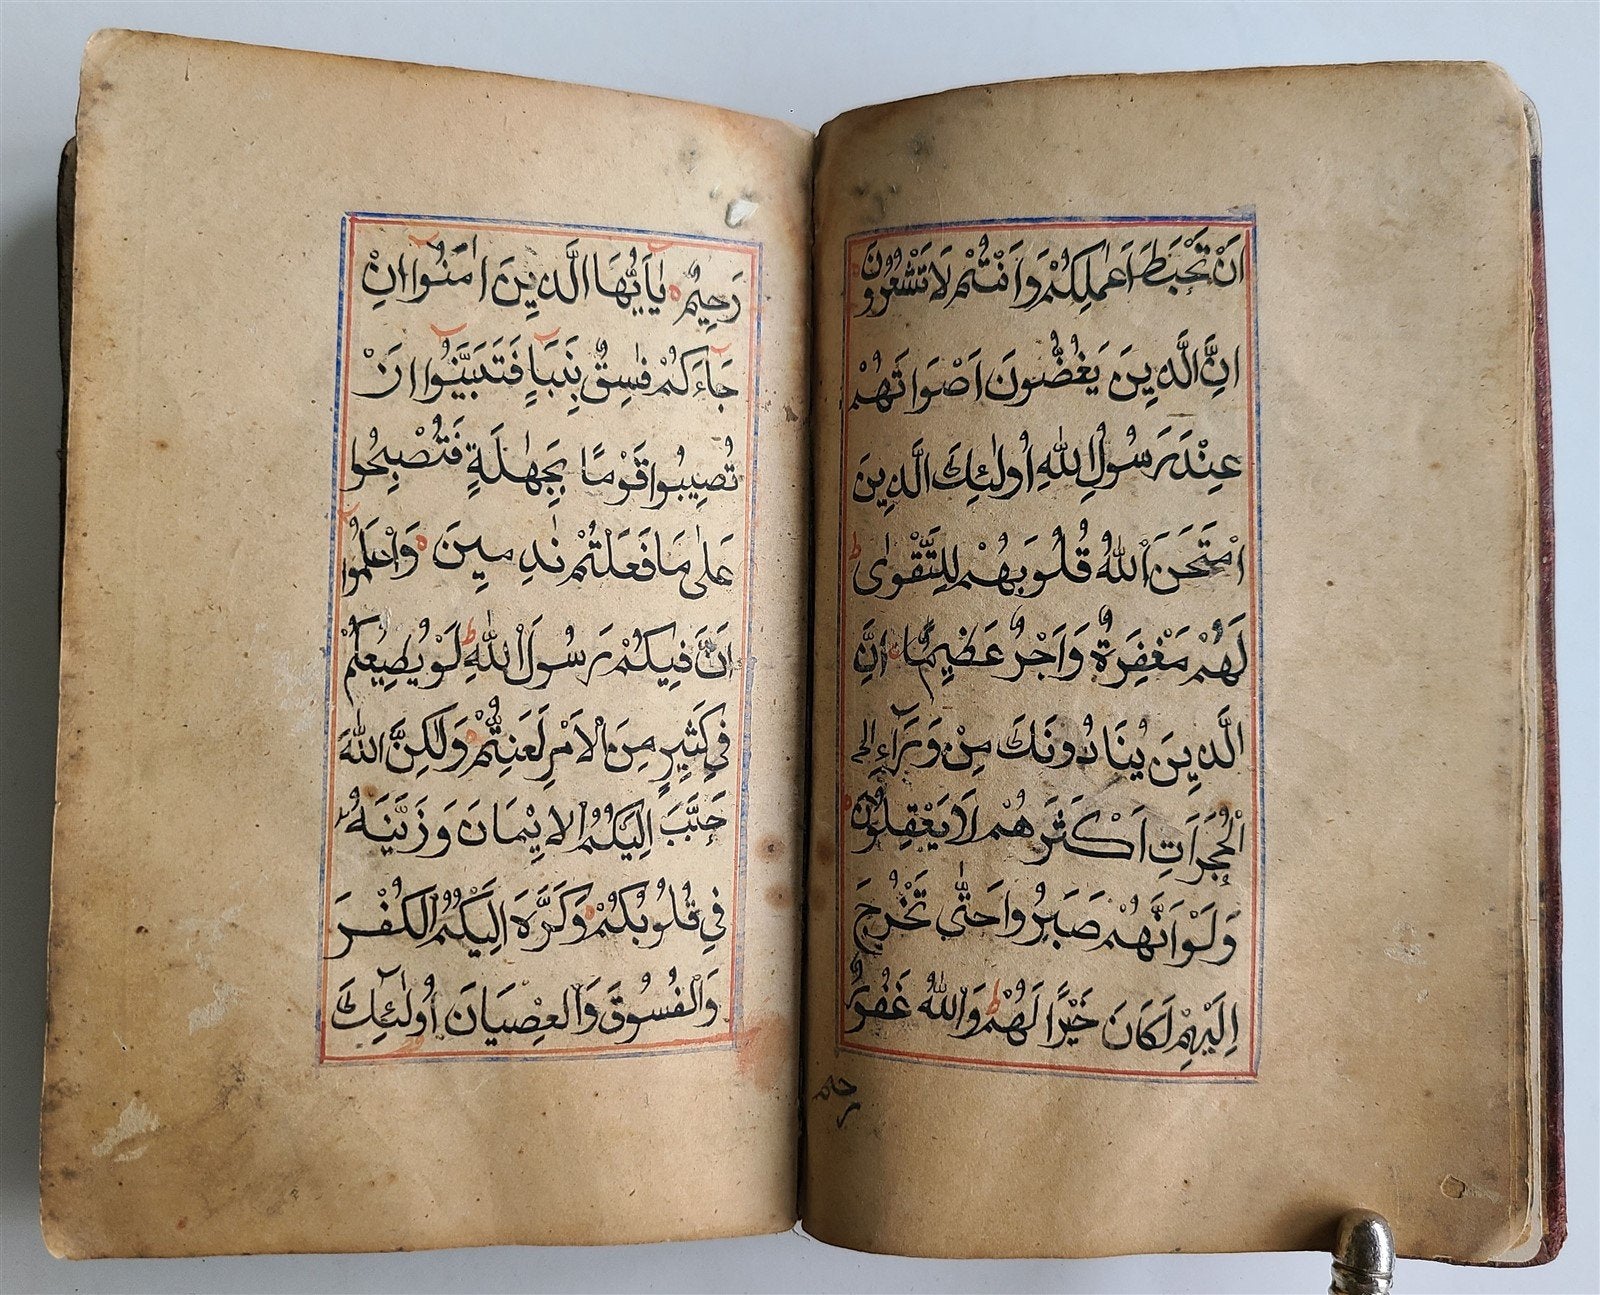 اَنْ تَحْبَطَ اَعْمٰلُكُمْ وَاَنْتُمْ لَا تَشْعُرُوْنَ
اِنَّ الَّذِيْنَ يَغُضُّوْنَ اَصْوَاتَهُمْ
عِنْدَ رَسُوْلِ اللّٰهِ اُولٰئِكَ الَّذِيْنَ
امْتَحَنَ اللّٰهُ قُلُوْبَهُمْ لِلتَّقْوٰى ط
لَهُمْ مَغْفِرَةٌ وَاَجْرٌ عَظِيْمًا اِنَّ
الَّذِيْنَ يُنَادُوْنَكَ مِنْ وَرَآءِ الح
الْحُجُرَاتِ اَكْثَرُهُمْ لَا يَعْقِلُوْنَ
وَلَوْ اَنَّهُمْ صَبَرُوْا حَتّٰى تَخْرُجَ
اِلَيْهِمْ لَكَانَ خَيْرًا لَهُمْ ط وَاللّٰهُ غَفُوْرٌ
رحيم
رَحِيْمٌ يٰاَيُّهَا الَّذِيْنَ اٰمَنُوْا اِنْ
جَآءَكُمْ فٰسِقٌ بِنَبَاٍ فَتَبَيَّنُوْا اَنْ
تُصِيْبُوْا قَوْمًا بِجَهٰلَةٍ فَتُصْبِحُوْا
عَلٰى مَا فَعَلْتُمْ نٰدِمِيْنَ وَاعْلَمُوْا
اَنَّ فِيْكُمْ رَسُوْلَ اللّٰهِ ط لَوْ يُطِيْعُكُمْ
فِيْ كَثِيْرٍ مِنَ الْاَمْرِ لَعَنِتُّمْ وَلٰكِنَّ اللّٰهَ
حَبَّبَ اِلَيْكُمُ الْاِيْمَانَ وَزَيَّنَهُ
فِيْ قُلُوْبِكُمْ وَكَرَّهَ اِلَيْكُمُ الْكُفْرَ
وَالْفُسُوْقَ وَالْعِصْيَانَ اُولٰٓئِكَ